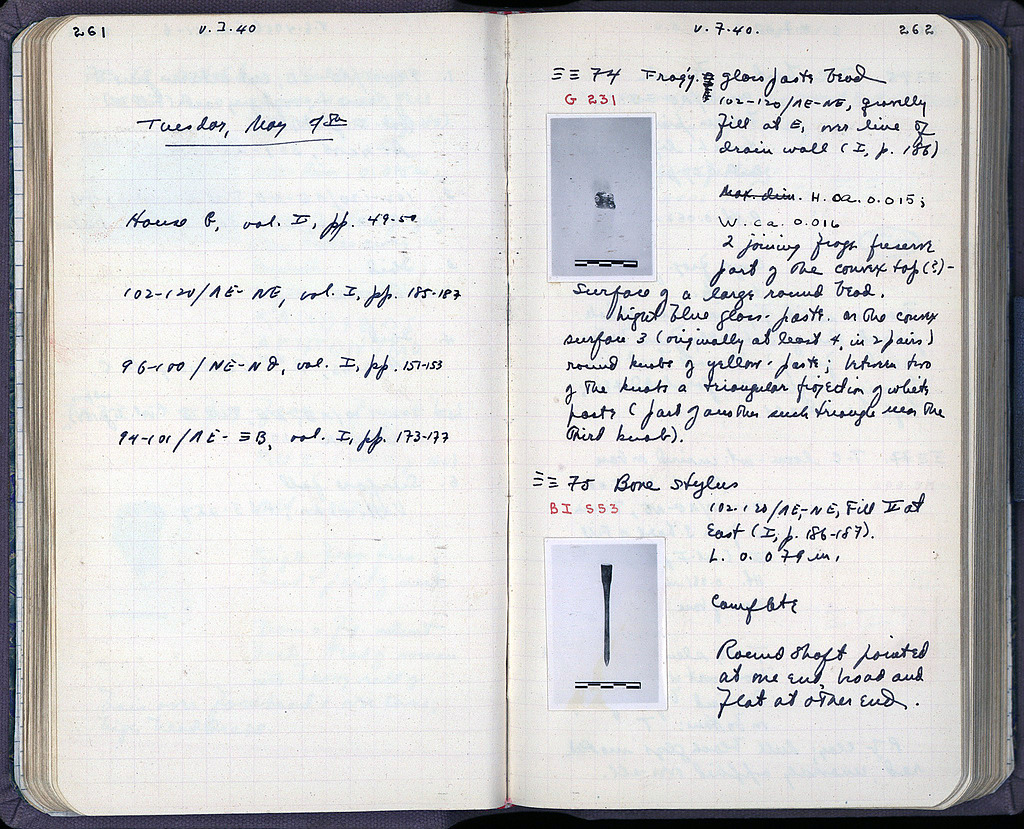 261
v.7.40
Tuesday, May 7th
House G, vol. II, pp. 49-50
102-120/ΛE-NE, vol. I, pp. 185-187
96-100/NE-NΘ, vol. I, pp. 151-153
94-101/ΛE-ΞB, vol. I, pp. 173-177
v.7.40.
262
ΞΞ 74 Frag'y. glass paste bead
G 231
102-120/ΛE-NE, gravelly
fill at E, over line of
drain wall (I, p. 186)
Max. dim. H. ca. 0.015;
W. ca. 0.016
2 joining frags preserve
part of the convex top(?)-
surface of a large round bead.
Light blue glass-paste. On the convex
surface 3 (originally at least 4, in 2 pairs)
round knobs of yellow-paste; between two
of the knobs a triangular projection of white
paste (part of another such triangle near the
third knob).
ΞΞ 75 Bone stylus
BI 553
102-120/ΛE-NE, Fill II at
East (I, p. 186-187).
L. 0.079 m.
Complete
Round shaft pointed
at one end, broad and
flat at other end.